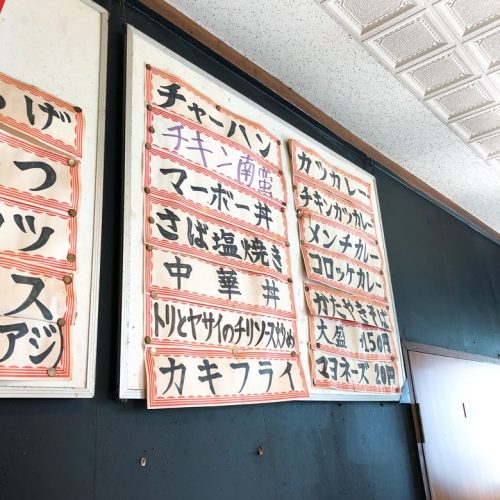 げ
つ
ツ
ス
アジ)
チャーハン
チキン南蛮
マーボー丼
さば塩焼き
中華丼
トリとヤサイのチリソース炒め
カキフライ
カツカレー
チキンカツカレー
メンチカレー
コロッケカレー
かたやきそば
大盛 150円
マヨネーズ 20円